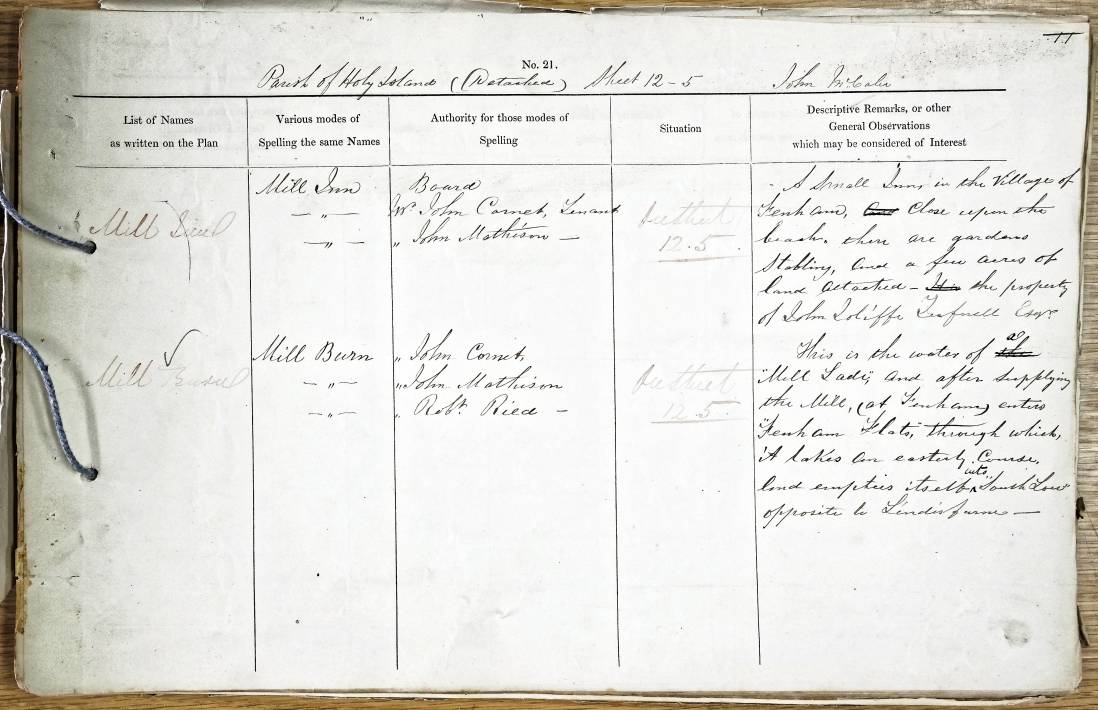 11
No. 21.
Parish of Holy Island (Detached) Sheet 12-5 John McCabe
List of Names
as written on the Plan
Various modes of
Spelling the same Names
Authority for those modes of
Spelling
Situation
Descriptive Remarks, or other
General Observations
which may be considered of Interest
Mill Inn
Mill Inn
— „ —
— „ —
Board
Mr. John Cornet, Tenant
„ John Mathison —
See Sheet
12.5.
A Small Inn, in the Village of
Fenham, and Close upon the
beach. there are gardens
Stabling, and a few acres of
land attached - It is the property
of John Joliffe Tufnell Esqr.
Mill Burn
Mill Burn
— „ —
— „ —
„ John Cornet
„ John Mathison
„ Robt. Ried —
See Sheet
12.5.
This is the water of the a
"Mill Lade", and after supplying
the Mill, (at Fenham) enters
"Fenham Flats", through which,
it takes an easterly Course,
and empties itself into "South Low"
opposite to Lindisfarne —